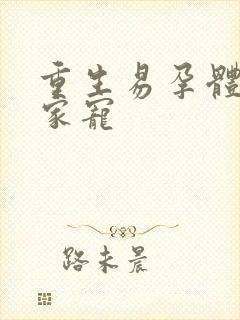 重生易孕體
家寵
路未晨